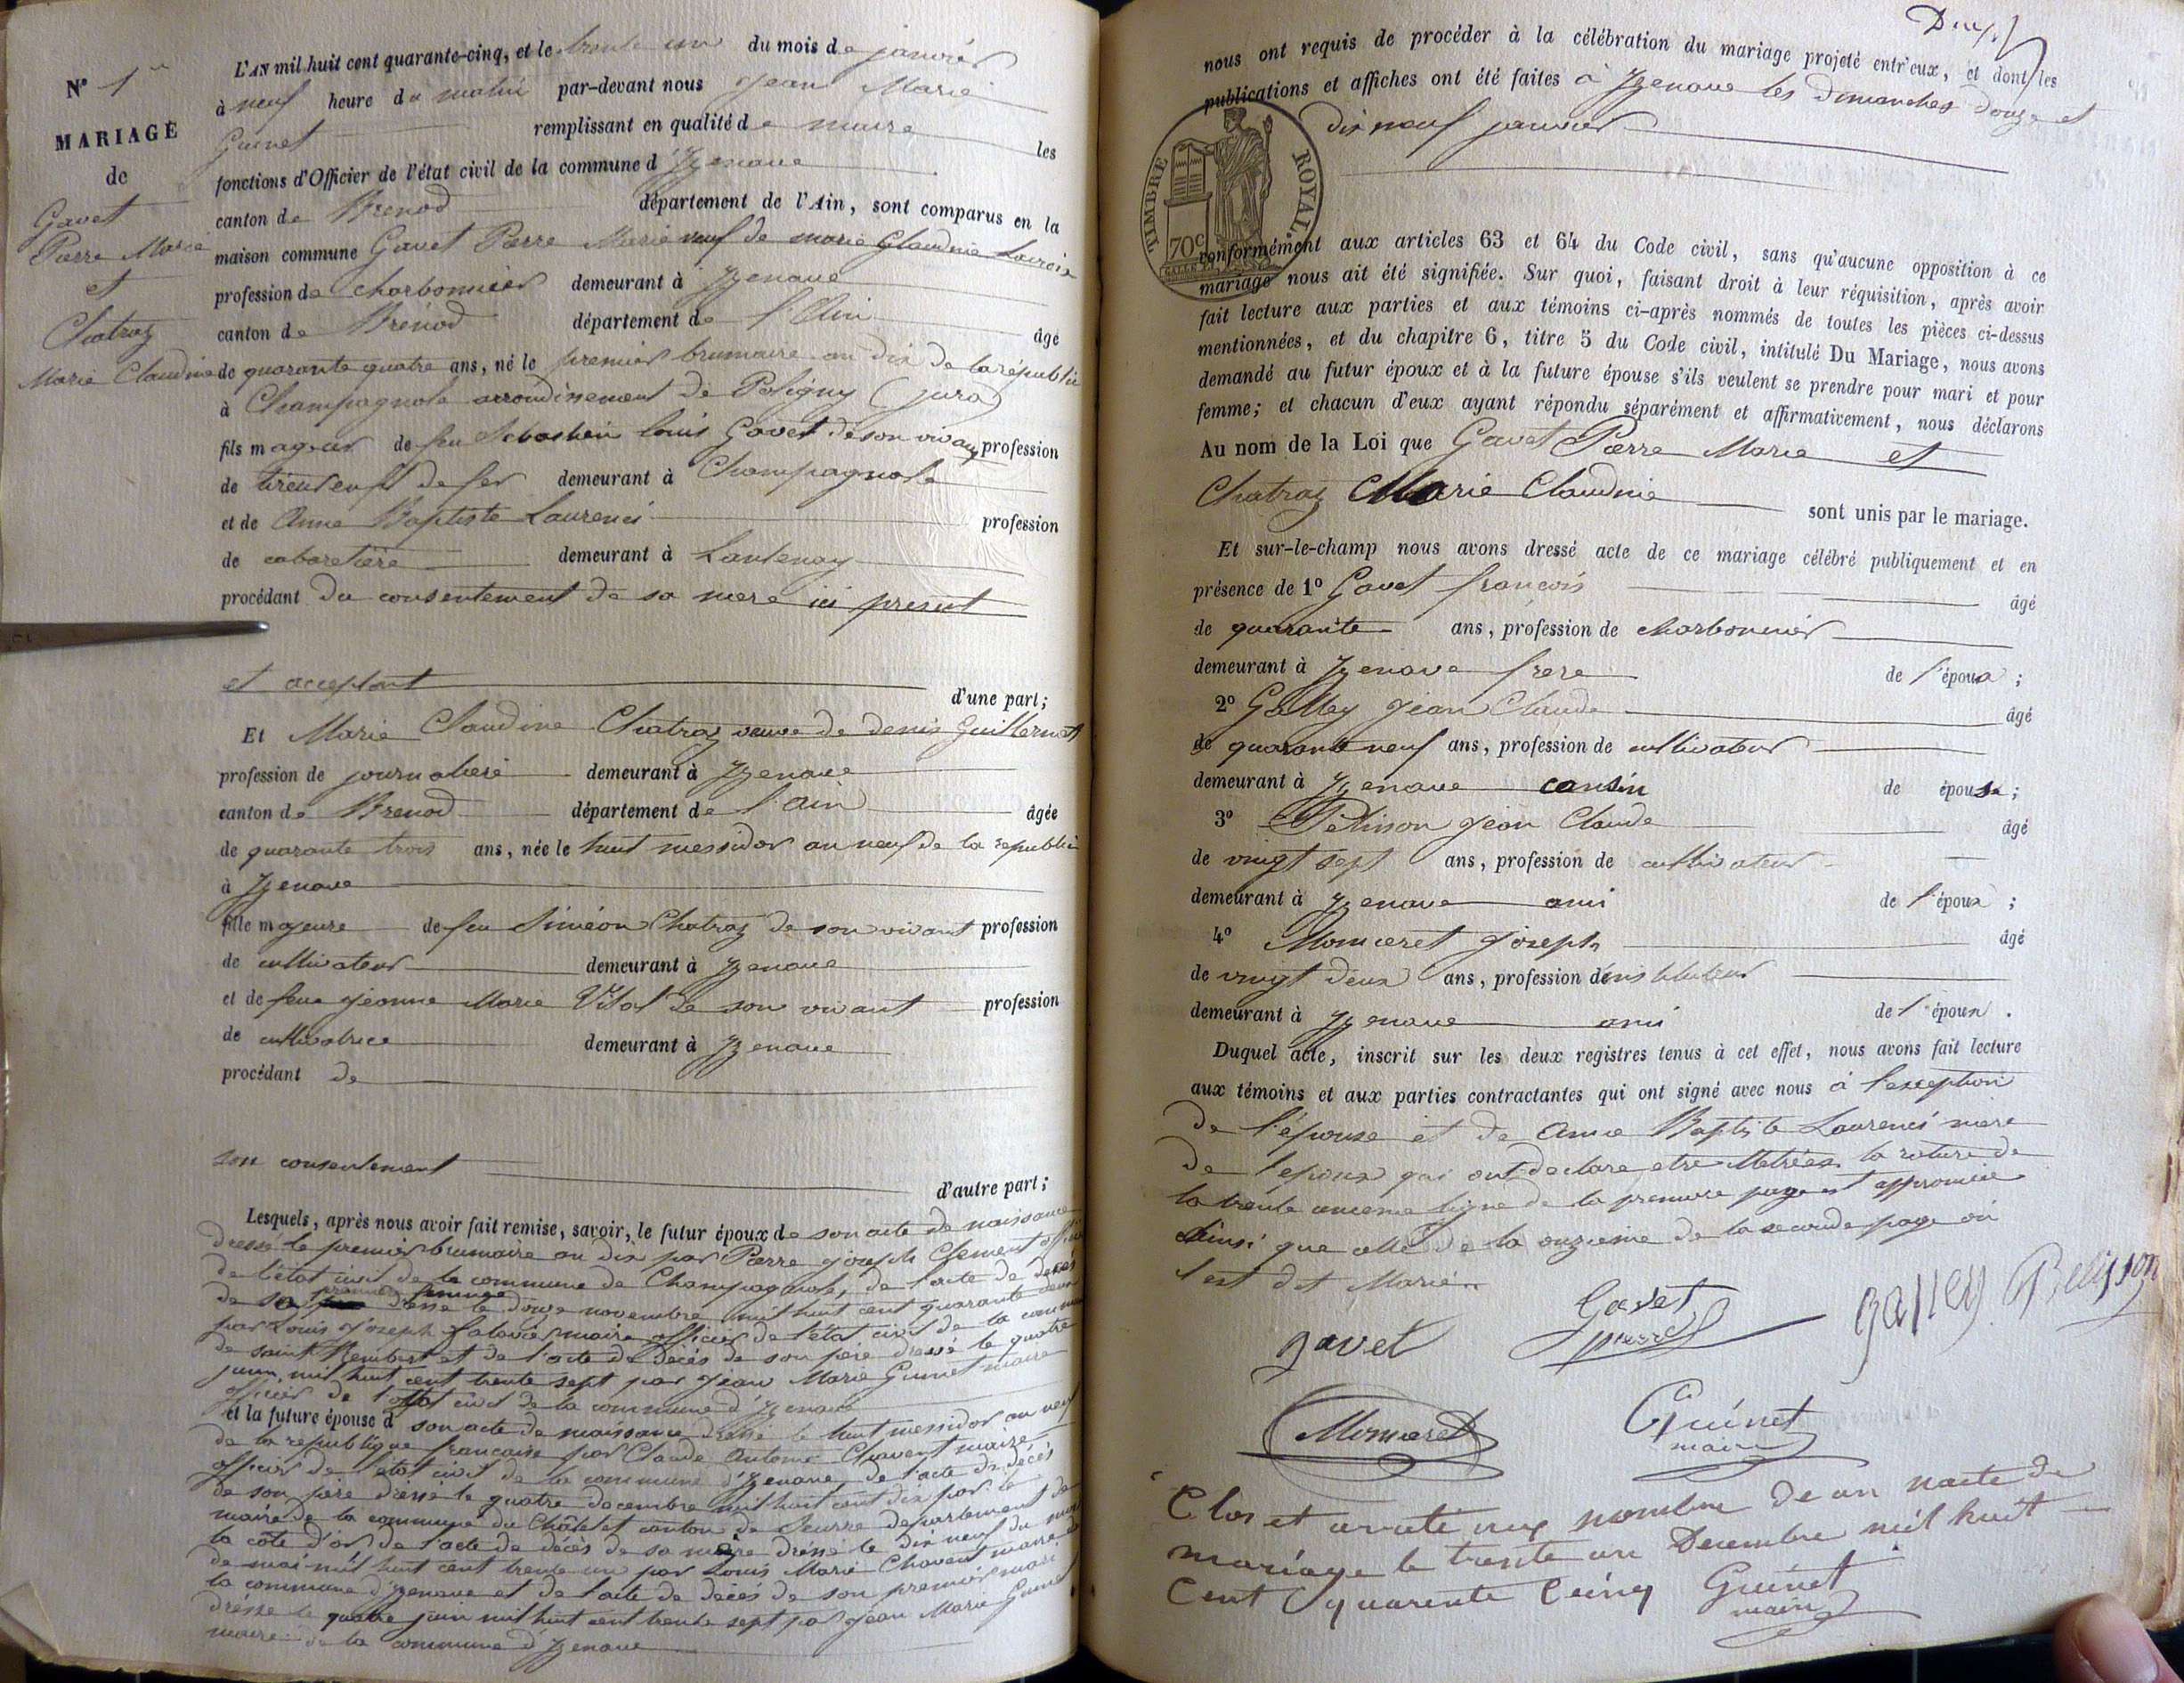 N° 1er
MARIAGE
de
Gavet
Pierre Marie
et
Chatraz
Marie Claudine
L'AN mil huit cent quarante-cinq, et le trente un du mois de janvier
à neuf heure du matin par-devant nous Jean Marie
Guinet remplissant en qualité de maire les
fonctions d'Officier de l'état civil de la commune d'Yzenave
canton de Brenod département de l'Ain, sont comparus en la
maison commune Gavet Pierre Marie veuf de marie Claudine Lacroix
profession de charbonnier demeurant à Yzenave
canton de Brenod département de l'Ain âgé
de quarante quatre ans, né le premier brumaire an dix de la républi
à Champagnole arrondissement de Poligny (jura)
fils majeur de feu Sebastien louis Gavet de son vivant profession
de tireur en fil de fer demeurant à Champagnole
et de Anne Baptiste Laurenci profession
de cabaretière demeurant à Lantenay
procédant du consentement de sa mere ici present
et acceptant d'une part;
Et Marie Claudine Chatraz veuve de denis Guillermet
profession de journaliere demeurant à Yzenave
canton de Brenod département de l'ain âgée
de quarante trois ans, née le huit messidor an neuf de la republi
à Yzenave
fille majeure de feu Siméon Chatraz de son vivant profession
de cultivateur demeurant à Yzenave
et de feue jeanne Marie Vital de son vivant profession
de cultivatrice demeurant à Yzenave
procédant de
son consentement d'autre part;
Lesquels, après nous avoir fait remise, savoir, le futur époux de son acte de naissance
dressé le premier brumaire an dix par Pierre joseph Clement offi
de l'état civil de la commune de Champagnole, de l'acte de décés
de sa premiere femme dressé le douze novembre mil huit cent quarante deux
par Louis Joseph maire officier de l'état civil de la commu
de saint Rembert et de l'acte de décés de son père dressé le quatre
juin mil huit cent trente sept par Jean Marie Guinet maire
officier de l'état civil de la commune d'Yzenave
et la future épouse d son acte de naissance dressé le huit messidor an neuf
de la republique française par Claude Antoine Chavent maire
officier de l'état civil de la commune d'Yzenave, de l'acte de décés
de son père dressé le quatre decembre mil huit cent dix par le
maire de la commune du Châtelet canton de Seurre departement de
la côte d'or, de l'acte de décés de sa mère dressé le dix neuf du mois
de mai mil huit cent trente un par Louis Marie Chavent maire de
la commune d'Yzenave et de l'acte de décés de son premier mari
dressé le quatre juin mil huit cent trente sept par jean Marie Guinet
maire de la commune d'Yzenave
nous ont requis de procéder à la célébration du mariage projeté entr'eux, et dont les
publications et affiches ont été faites à Yzenave les dimanches douze et
dix neuf janvier
TIMBRE ROYAL.
70c
conformément aux articles 63 et 64 du Code civil, sans qu'aucune opposition à ce
mariage nous ait été signifiée. Sur quoi, faisant droit à leur réquisition, après avoir
fait lecture aux parties et aux témoins ci-après nommés de toutes les pièces ci-dessus
mentionnées, et du chapitre 6, titre 5 du Code civil, intitulé Du Mariage, nous avons
demandé au futur époux et à la future épouse s'ils veulent se prendre pour mari et pour
femme; et chacun d'eux ayant répondu séparément et affirmativement, nous déclarons
Au nom de la Loi que Gavet Pierre Marie et
Chatraz Marie Claudine sont unis par le mariage.
Et sur-le-champ nous avons dressé acte de ce mariage célébré publiquement et en
présence de 1° Gavet françois âgé
de quarante ans, profession de charbonnier
demeurant à Yzenave frere de l'époux;
2° Galley Jean Claude âgé
de quarante neuf ans, profession de cultivateur
demeurant à Yzenave cousin de épouse;
3° Pelisson Jean Claude âgé
de vingt sept ans, profession de cultivateur
demeurant à Yzenave ami de l'époux;
4° Momceret Joseph âgé
de vingt deux ans, profession d'instituteur
demeurant à Yzenave ami de l'époux.
Duquel acte, inscrit sur les deux registres tenus à cet effet, nous avons fait lecture
aux témoins et aux parties contractantes qui ont signé avec nous à l'exception
de l'épouse et de Anne Baptiste Laurenci mere
de l'epoux qui ont declare etre illetrées la rature de
la trente unieme ligne de la premiere page est approuvée
ainsi que celle de la onzieme de la seconde page ou
il est dit Marie
gavet Gavet pierre galley Pelisson
Momceret Guinet
maire
Clos et arrete au nombre de un nacte de
mariage le trente un Decembre mil huit
Cent quarente Ceinq Guinet
maire